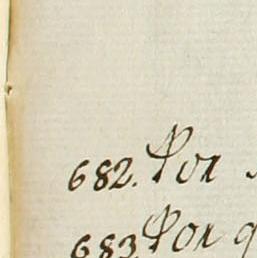 682. Por
683 Por q